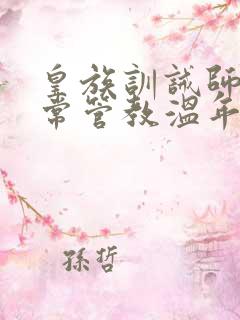 皇族訓誡師
常管教溫年
孫哲